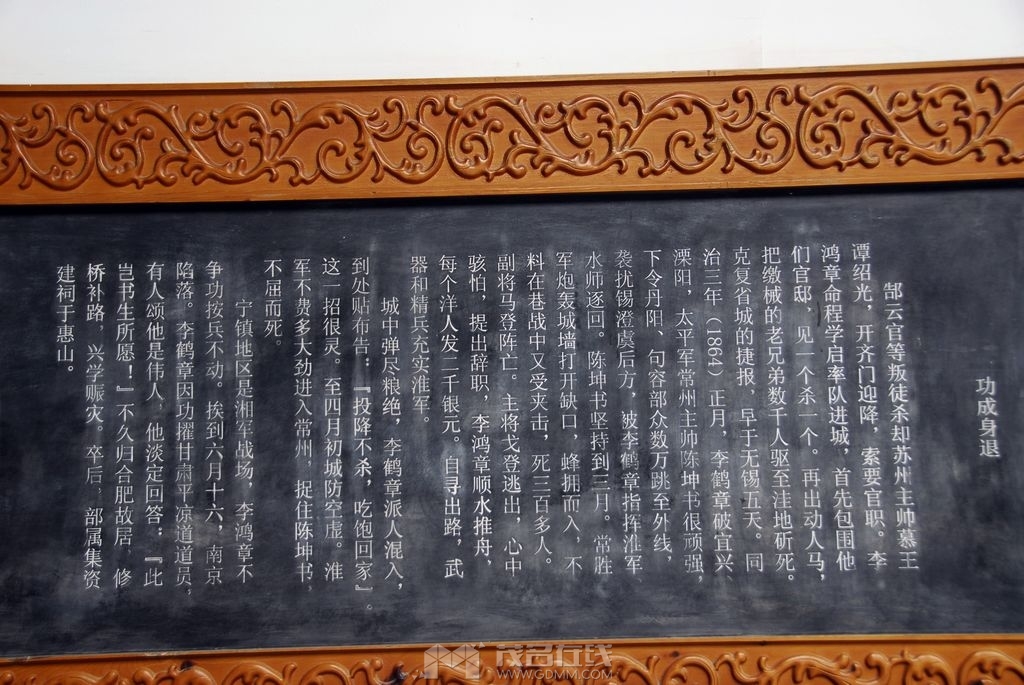 功成身退
郜云官等叛徒杀却苏州主帅慕王
谭绍光，开齐门迎降，索要官职。李
鸿章命程学启率队进城，首先包围他
们官邸，见一个杀一个。再出动人马，
把缴械的老兄弟数千人驱至洼地斫死。
克复省城的捷报，早于无锡五天。同
治三年（1864）正月，李鹤章破宜兴、
溧阳，太平军常州主帅陈坤书很顽强，
下令丹阳、句容部众数万跳至外线，
袭扰锡澄虞后方，被李鹤章指挥淮军、
水师逐回。陈坤书坚持到三月。常胜
军炮轰城墙打开缺口，蜂拥而入，不
料在巷战中又受夹击，死三百多人。
副将马登阵亡。主将戈登逃出，心中
骇怕，提出辞职，李鸿章顺水推舟，
每个洋人发二千银元。自寻出路，武
器和精兵充实淮军。
城中弹尽粮绝，李鹤章派人混入，
到处贴布告：『投降不杀，吃饱回家』。
这一招很灵。至四月初城防空虚。淮
军不费多大劲进入常州，捉住陈坤书，
不屈而死。
宁镇地区是湘军战场，李鸿章不
争功按兵不动。挨到六月十六，南京
陷落。李鹤章因功擢甘肃平凉道道员，
有人颂他是伟人，他淡定回答：『此
岂书生所愿！』不久归合肥故居，修
桥补路，兴学赈灾。卒后，部属集资
建祠于惠山。
茂名在线
WWW.GDMM.COM